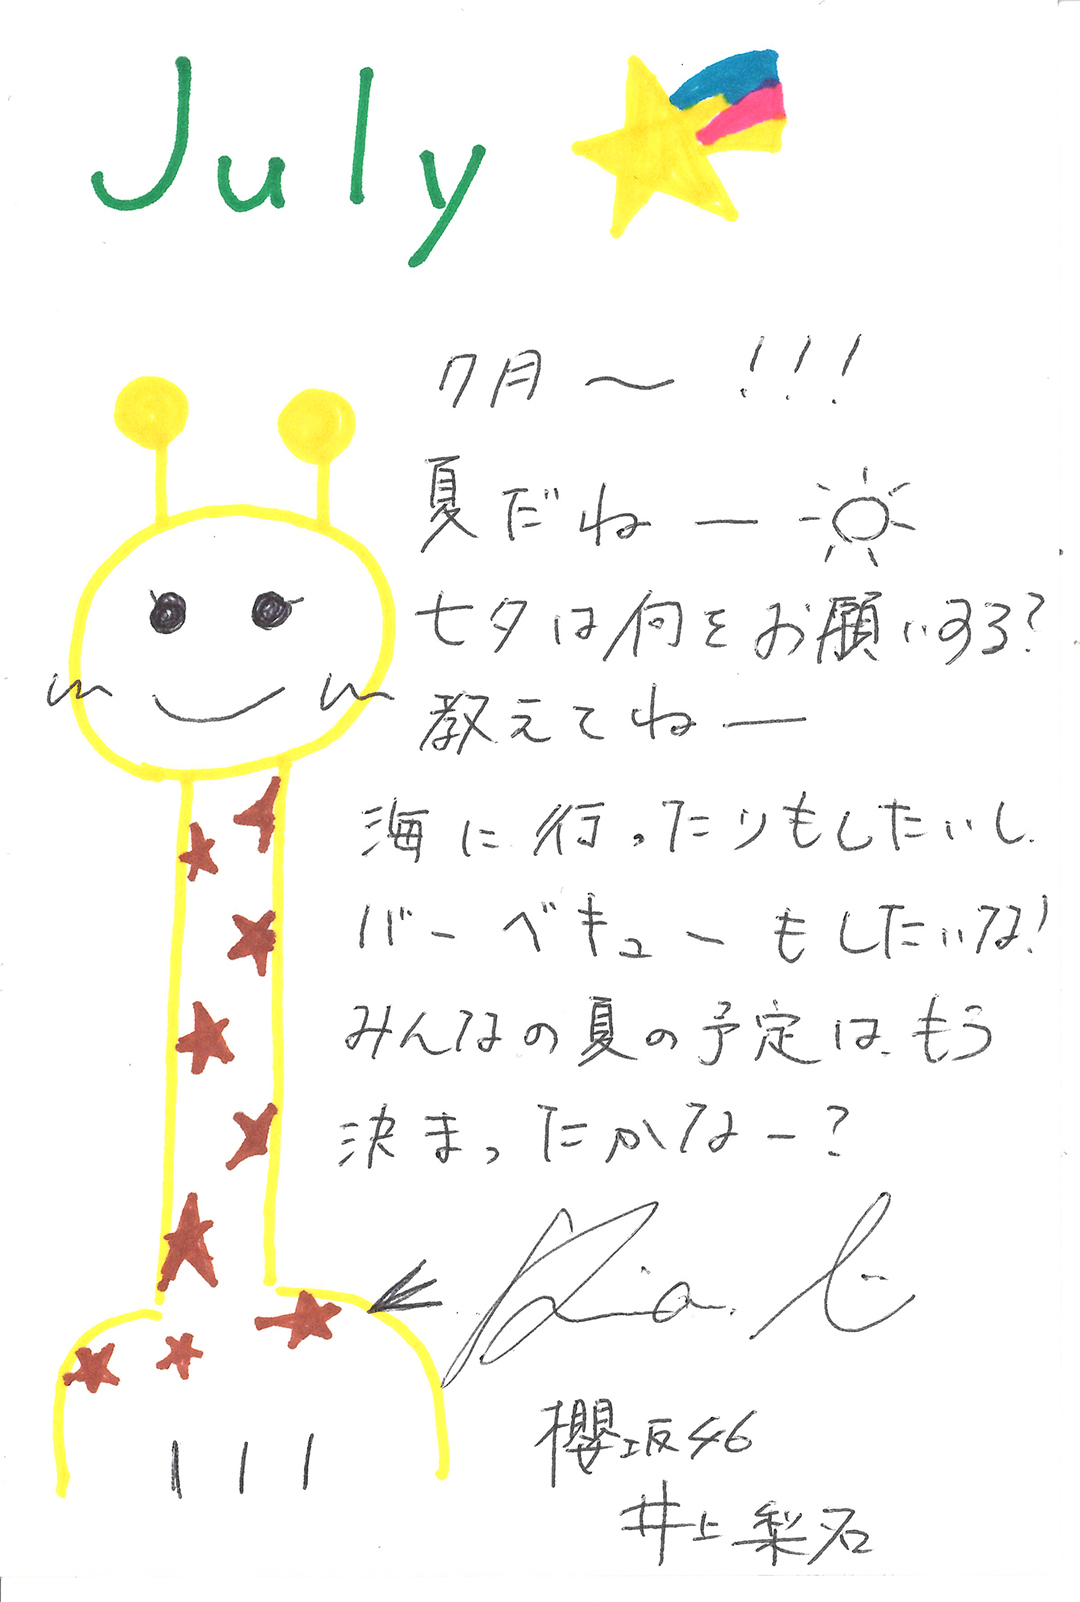 July
7月〜!!!
夏だねー
七夕は何をお願いする?
教えてねー
海に行ったりもしたいし
バーベキューもしたいな!
みんなの夏の予定は、もう
決まったかなー?
櫻坂46
井上梨名